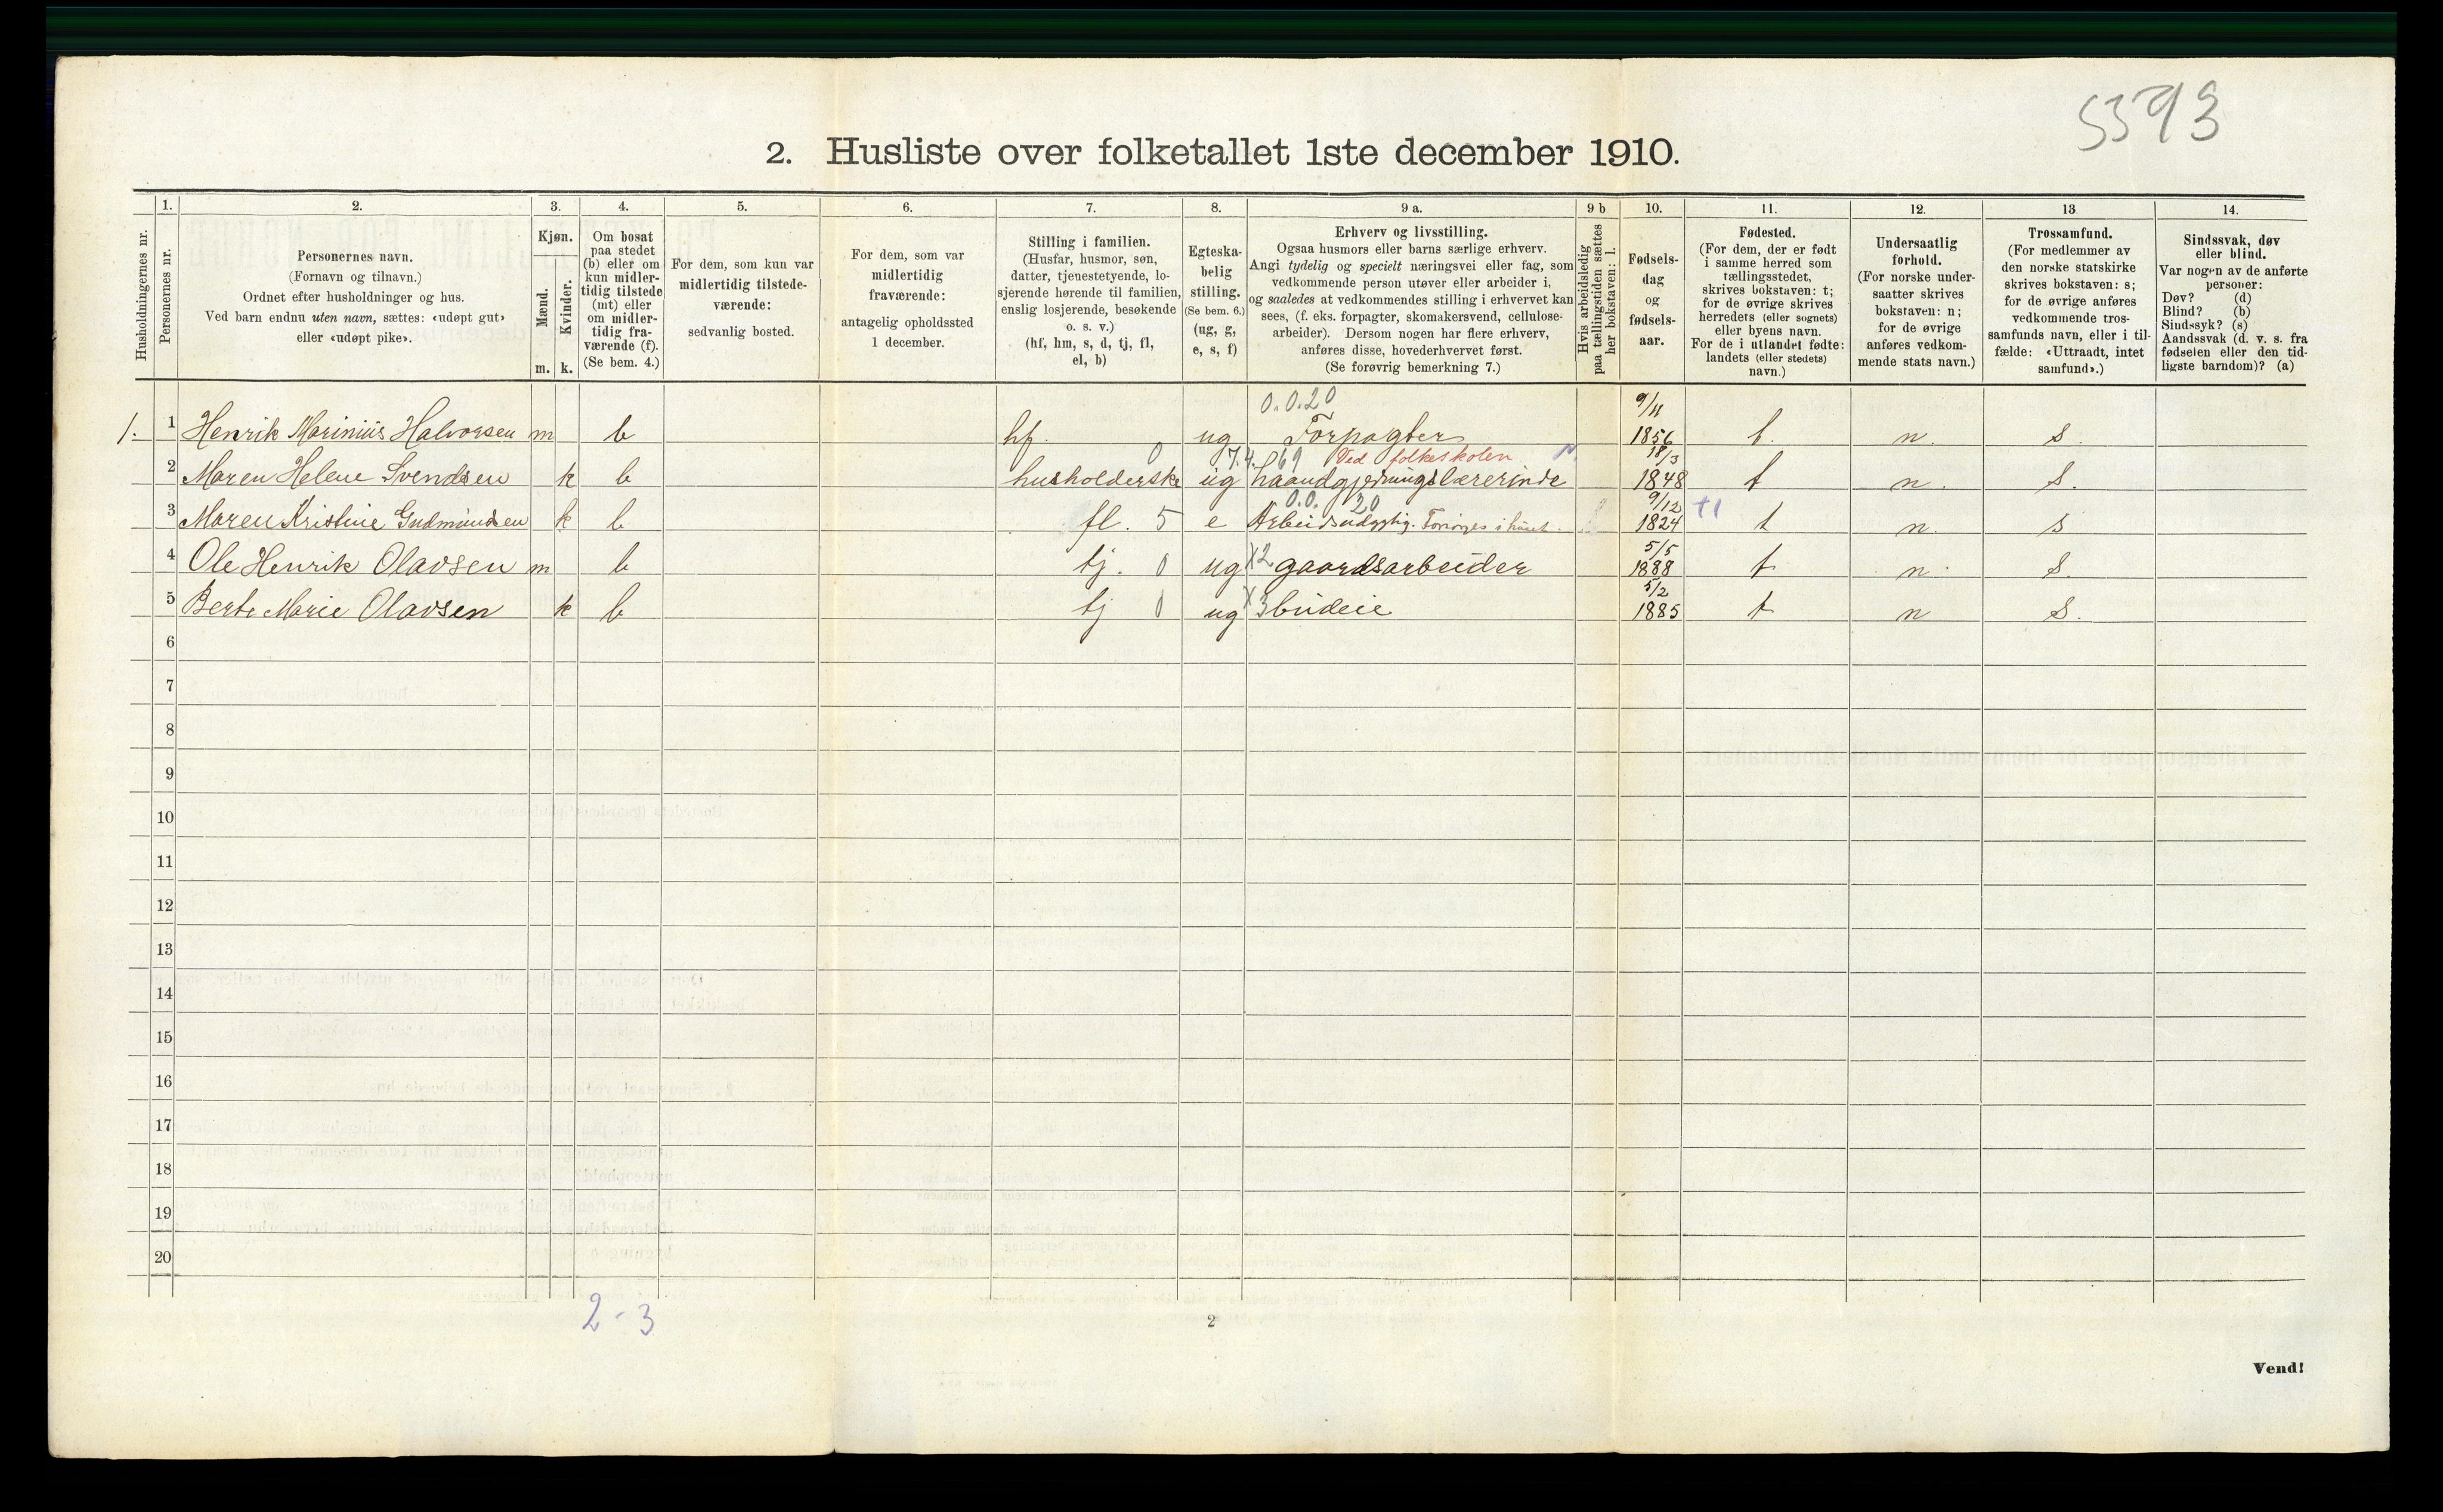 5393
2. Husliste over folketallet 1ste december 1910.
Husholdningernes nr.
1.
Personernes nr.
2.
Personernes navn.
(Fornavn og tilnavn.)
Ordnet efter husholdninger og hus.
Ved barn endnu uten navn, sættes: «udøpt gut»
eller «udøpt pike».
3.
Kjøn.
Mænd.
Kvinder.
m. k.
4.
Om bosat
paa stedet
(b) eller om
kun midler-
tidig tilstede
(mt) eller
om midler-
tidig fra-
værende (f).
(Se bem. 4.)
5.
For dem, som kun var
midlertidig tilstede-
værende:
sedvanlig bosted.
6.
For dem, som var
midlertidig
fraværende:
antagelig opholdssted
1 december.
7.
Stilling i familien.
(Husfar, husmor, søn,
datter, tjenestetyende, lo-
sjerende hørende til familien,
enslig losjerende, besøkende
o. s. v.)
(hf, hm, s, d, tj, fl,
el, b)
8.
Egteska-
belig
stilling.
(Se bem. 6.)
(ug, g,
e, s, f)
9 a.
Erhverv og livsstilling.
Ogsaa husmors eller barns særlige erhverv.
Angi tydelig og specielt næringsvei eller fag, som
vedkommende person utøver eller arbeider i,
og saaledes at vedkommendes stilling i erhvervet kan
sees, (f. eks. forpagter, skomakersvend, cellulose-
arbeider). Dersom nogen har flere erhverv,
anføres disse, hovederhvervet først.
(Se forøvrig bemerkning 7.)
9 b
Hvis arbeidsledig
paa tællingstiden sættes
her bokstaven: l.
10.
Fødsels-
dag
og
fødsels-
aar.
11.
Fødested.
(For dem, der er født
i samme herred som
tællingsstedet,
skrives bokstaven: t;
for de øvrige skrives
herredets (eller sognets)
eller byens navn.
For de i utlandet fødte:
landets (eller stedets)
navn.)
12.
Undersaatlig
forhold.
(For norske under-
saatter skrives
bokstaven: n;
for de øvrige
anføres vedkom-
mende stats navn.)
13
Trossamfund.
(For medlemmer av
den norske statskirke
skrives bokstaven: s;
for de øvrige anføres
vedkommende tros-
samfunds navn, eller i til-
fælde: «Uttraadt, intet
samfund».)
14.
Sindssvak, døv
eller blind.
Var nogen av de anførte
personer:
Døv? (d)
Blind? (b)
Sindssyk? (s)
Aandssvak (d. v. s. fra
fødselen eller den tid-
ligste barndom)? (a)
0.0.20 9/11
1. 1 Henrik Marinius Halvorsen m b hf. ug Forpagter 1856 t. n. s.
0 7.4.069 Ved folkeskolen 18/3
2 Maren Helene Svendsen k b husholderske ug haandgjerningslærerinde 1848 t n. s.
0.0. 20 9/12 t1
3 Maren Kristine Gudmundsen k b fl. 5 e Arbeidsudygtig. Forsørges i huset. 1824 t n. s
5/5
4 Ole Henrik Olavsen m b tj. 0 ug X2 gaardsarbeider 1888 t n. s.
5/2
5 Berte Marie Olavsen k b tj 0 ug X3 budeie 1885 t n s.
6
7
8
9
10
11
12
13
14
15
16
17
18
19
20
2-3
2
Vend!